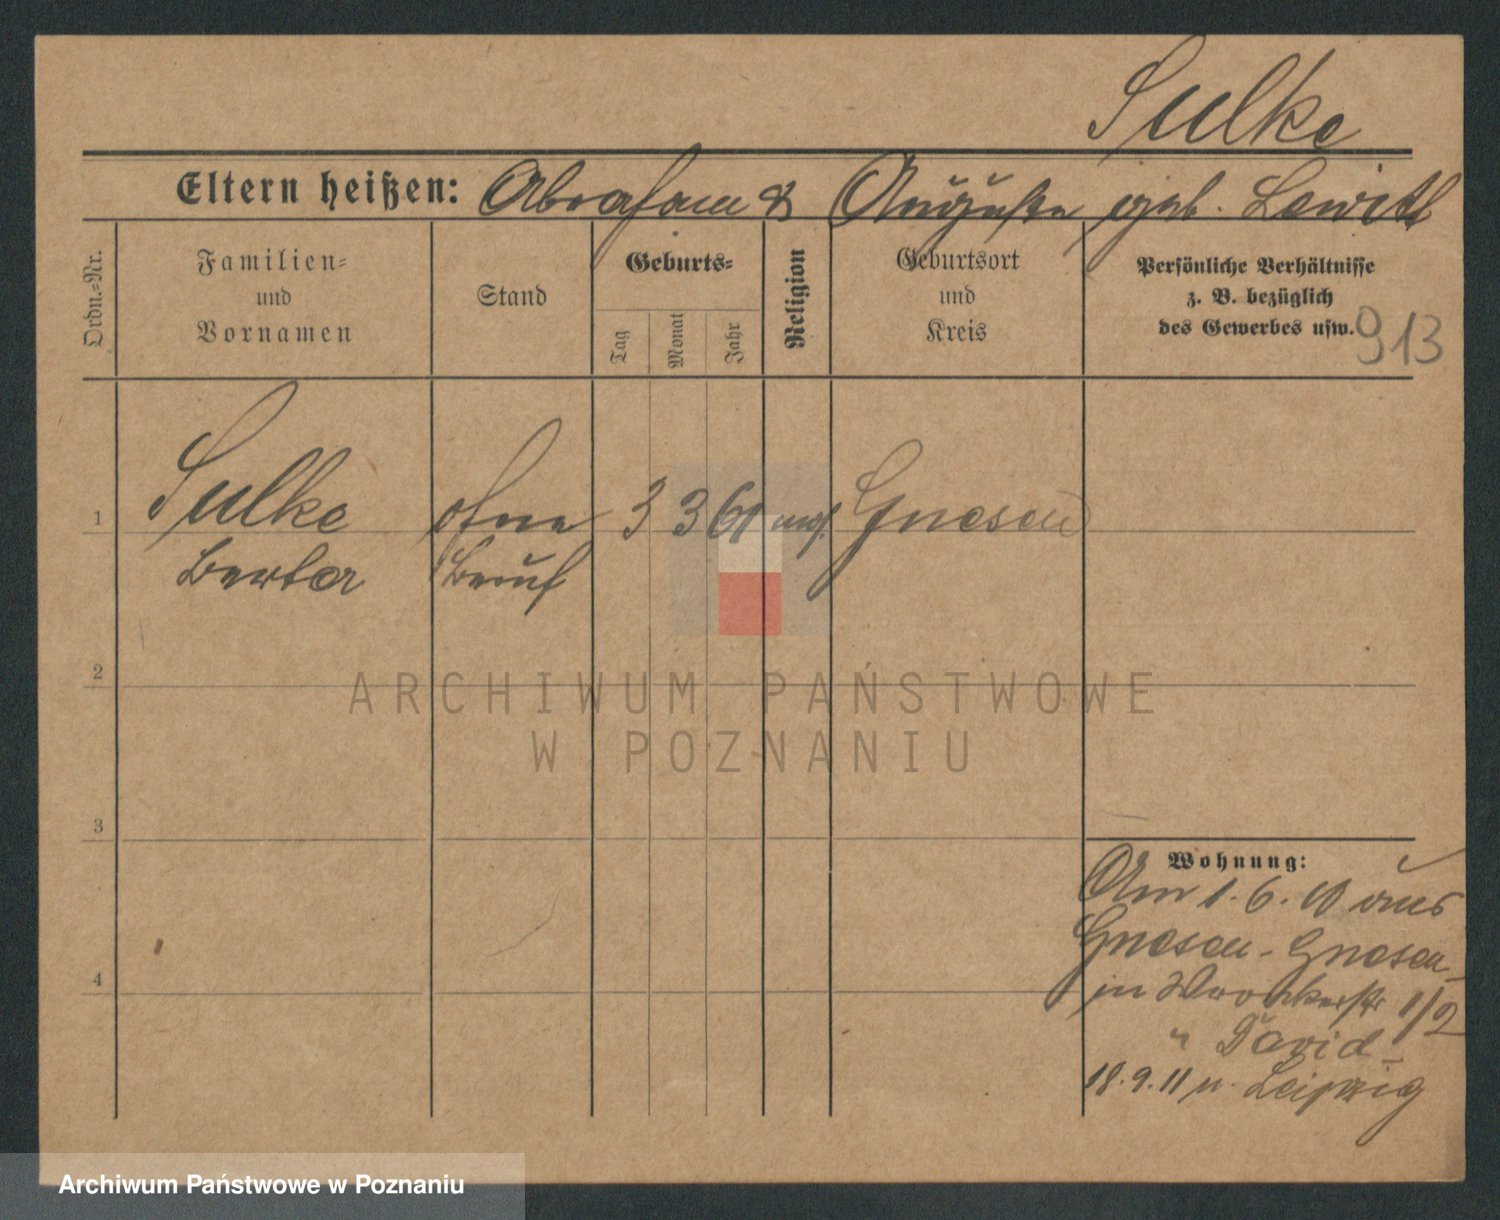 Sulke
Eltern heißen: Abraham & Auguste geb. Lewitt
Ordn.-Nr.
Familien-
und
Vornamen
Stand
Geburts-
Tag
Monat
Jahr
Religion
Geburtsort
und
Kreis
Persönliche Verhältnisse
z. B. bezüglich
des Gewerbes usw.
913
1
Sulke
Berta
ohne
Beruf
3 3 61 mos. Gnesen
2
ARCHIWUM PAŃSTWOWE
W POZNANIU
3
Wohnung:
Am 1.6.10 aus
Gnesen - Gnesen
in Wronkerstr 1/2
" David
18.9.11 n. Leipzig
4
Archiwum Państwowe w Poznaniu